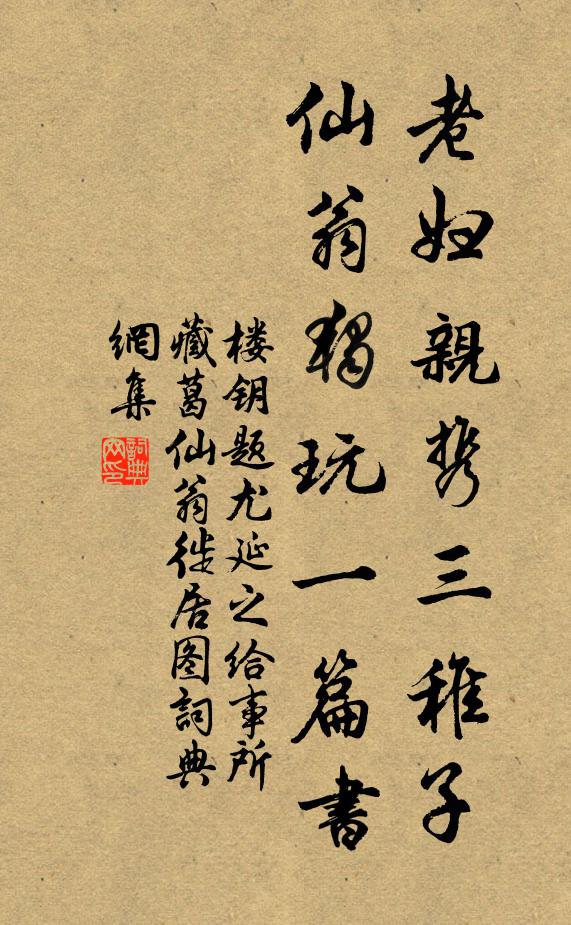 老妇親携三稚子
仙翁独玩一篇書
楼钥题尤延之给事所
藏葛仙翁徙居图詞典
網集
詞典
网印